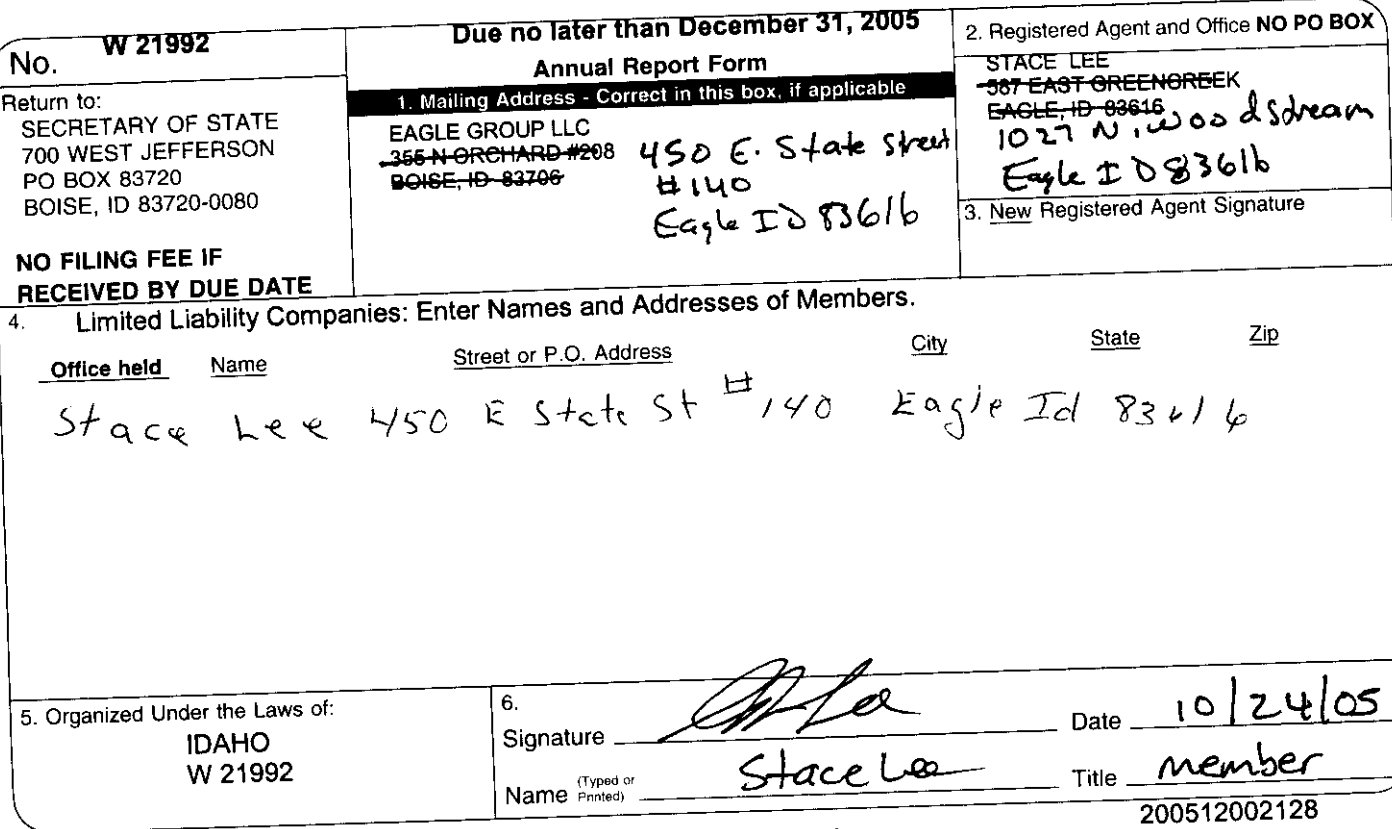 No. W 21992
Return to:
SECRETARY OF STATE
700 WEST JEFFERSON
PO BOX 83720
BOISE, ID 83720-0080
NO FILING FEE IF
RECEIVED BY DUE DATE
Due no later than December 31, 2005
Annual Report Form
1. Mailing Address - Correct in this box, if applicable
EAGLE GROUP LLC
355 N ORCHARD #208
BOISE, ID 83706
450 E. State Street
#140
Eagle ID 83616
2. Registered Agent and Office NO PO BOX
STACE LEE
587 EAST GREENCREEK
EAGLE, ID 83616
1027 N. Woodsdream
Eagle ID 83616
3. New Registered Agent Signature
4. Limited Liability Companies: Enter Names and Addresses of Members.
Office held Name Street or P.O. Address City State Zip
Stace Lee 450 E State St #140 Eagle Id 83616
5. Organized Under the Laws of:
IDAHO
W 21992
6.
Signature Date 10/24/05
Name (Typed or Printed) Stace Lee Title member
200512002128